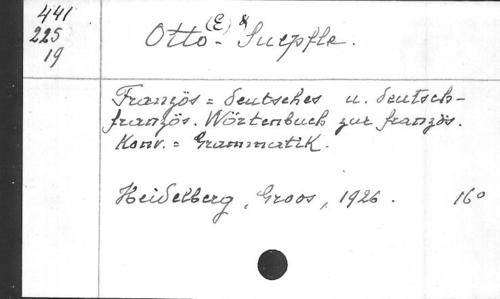 441
225
19
Otto-(E) & Suepfle.
Französ = deutsches u. deutsch-
französ. Wörtenbuch zur französ.
Konv. = Grammatik.
Heidelberg, Groos, 1926. 16°